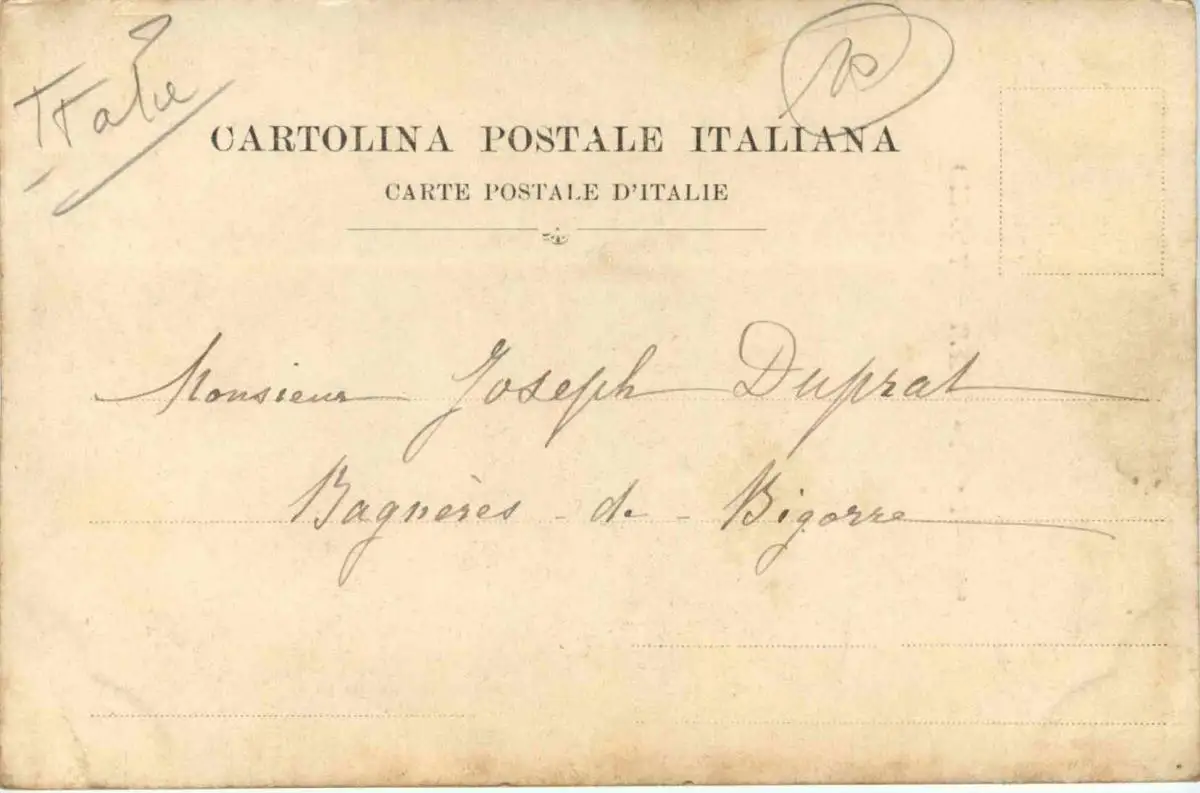 Italie
CARTOLINA POSTALE ITALIANA
CARTE POSTALE D'ITALIE
Monsieur Joseph Duprat
Bagnères - de - Bigorre